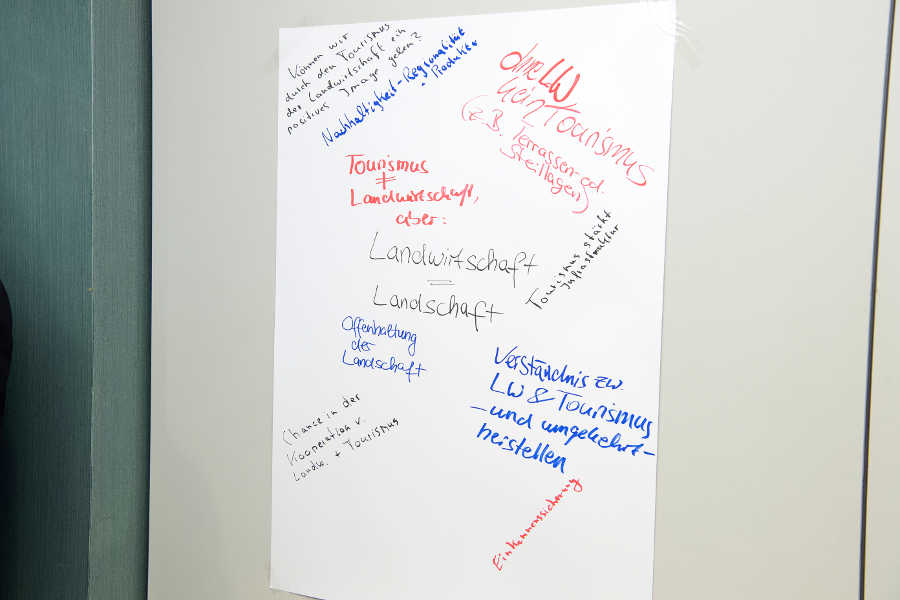 Können wir
durch den Tourismus
der Landwirtschaft ein
positives Image geben?
Nachhaltigkeit - Regionalität
- Produkte
ohne LW
kein Tourismus
(z.B. Terrassen- od.
Steillagen)
Tourismus
≠
Landwirtschaft,
aber:
Landwirtschaft
=
Landschaft
Tourismus stärkt
Infrastruktur
Offenhaltung
der
Landschaft
Verständnis zw.
LW & Tourismus
- und umgekehrt -
herstellen
Chance in der
Kooperation v.
Landw. + Tourismus
Einkommenssicherung